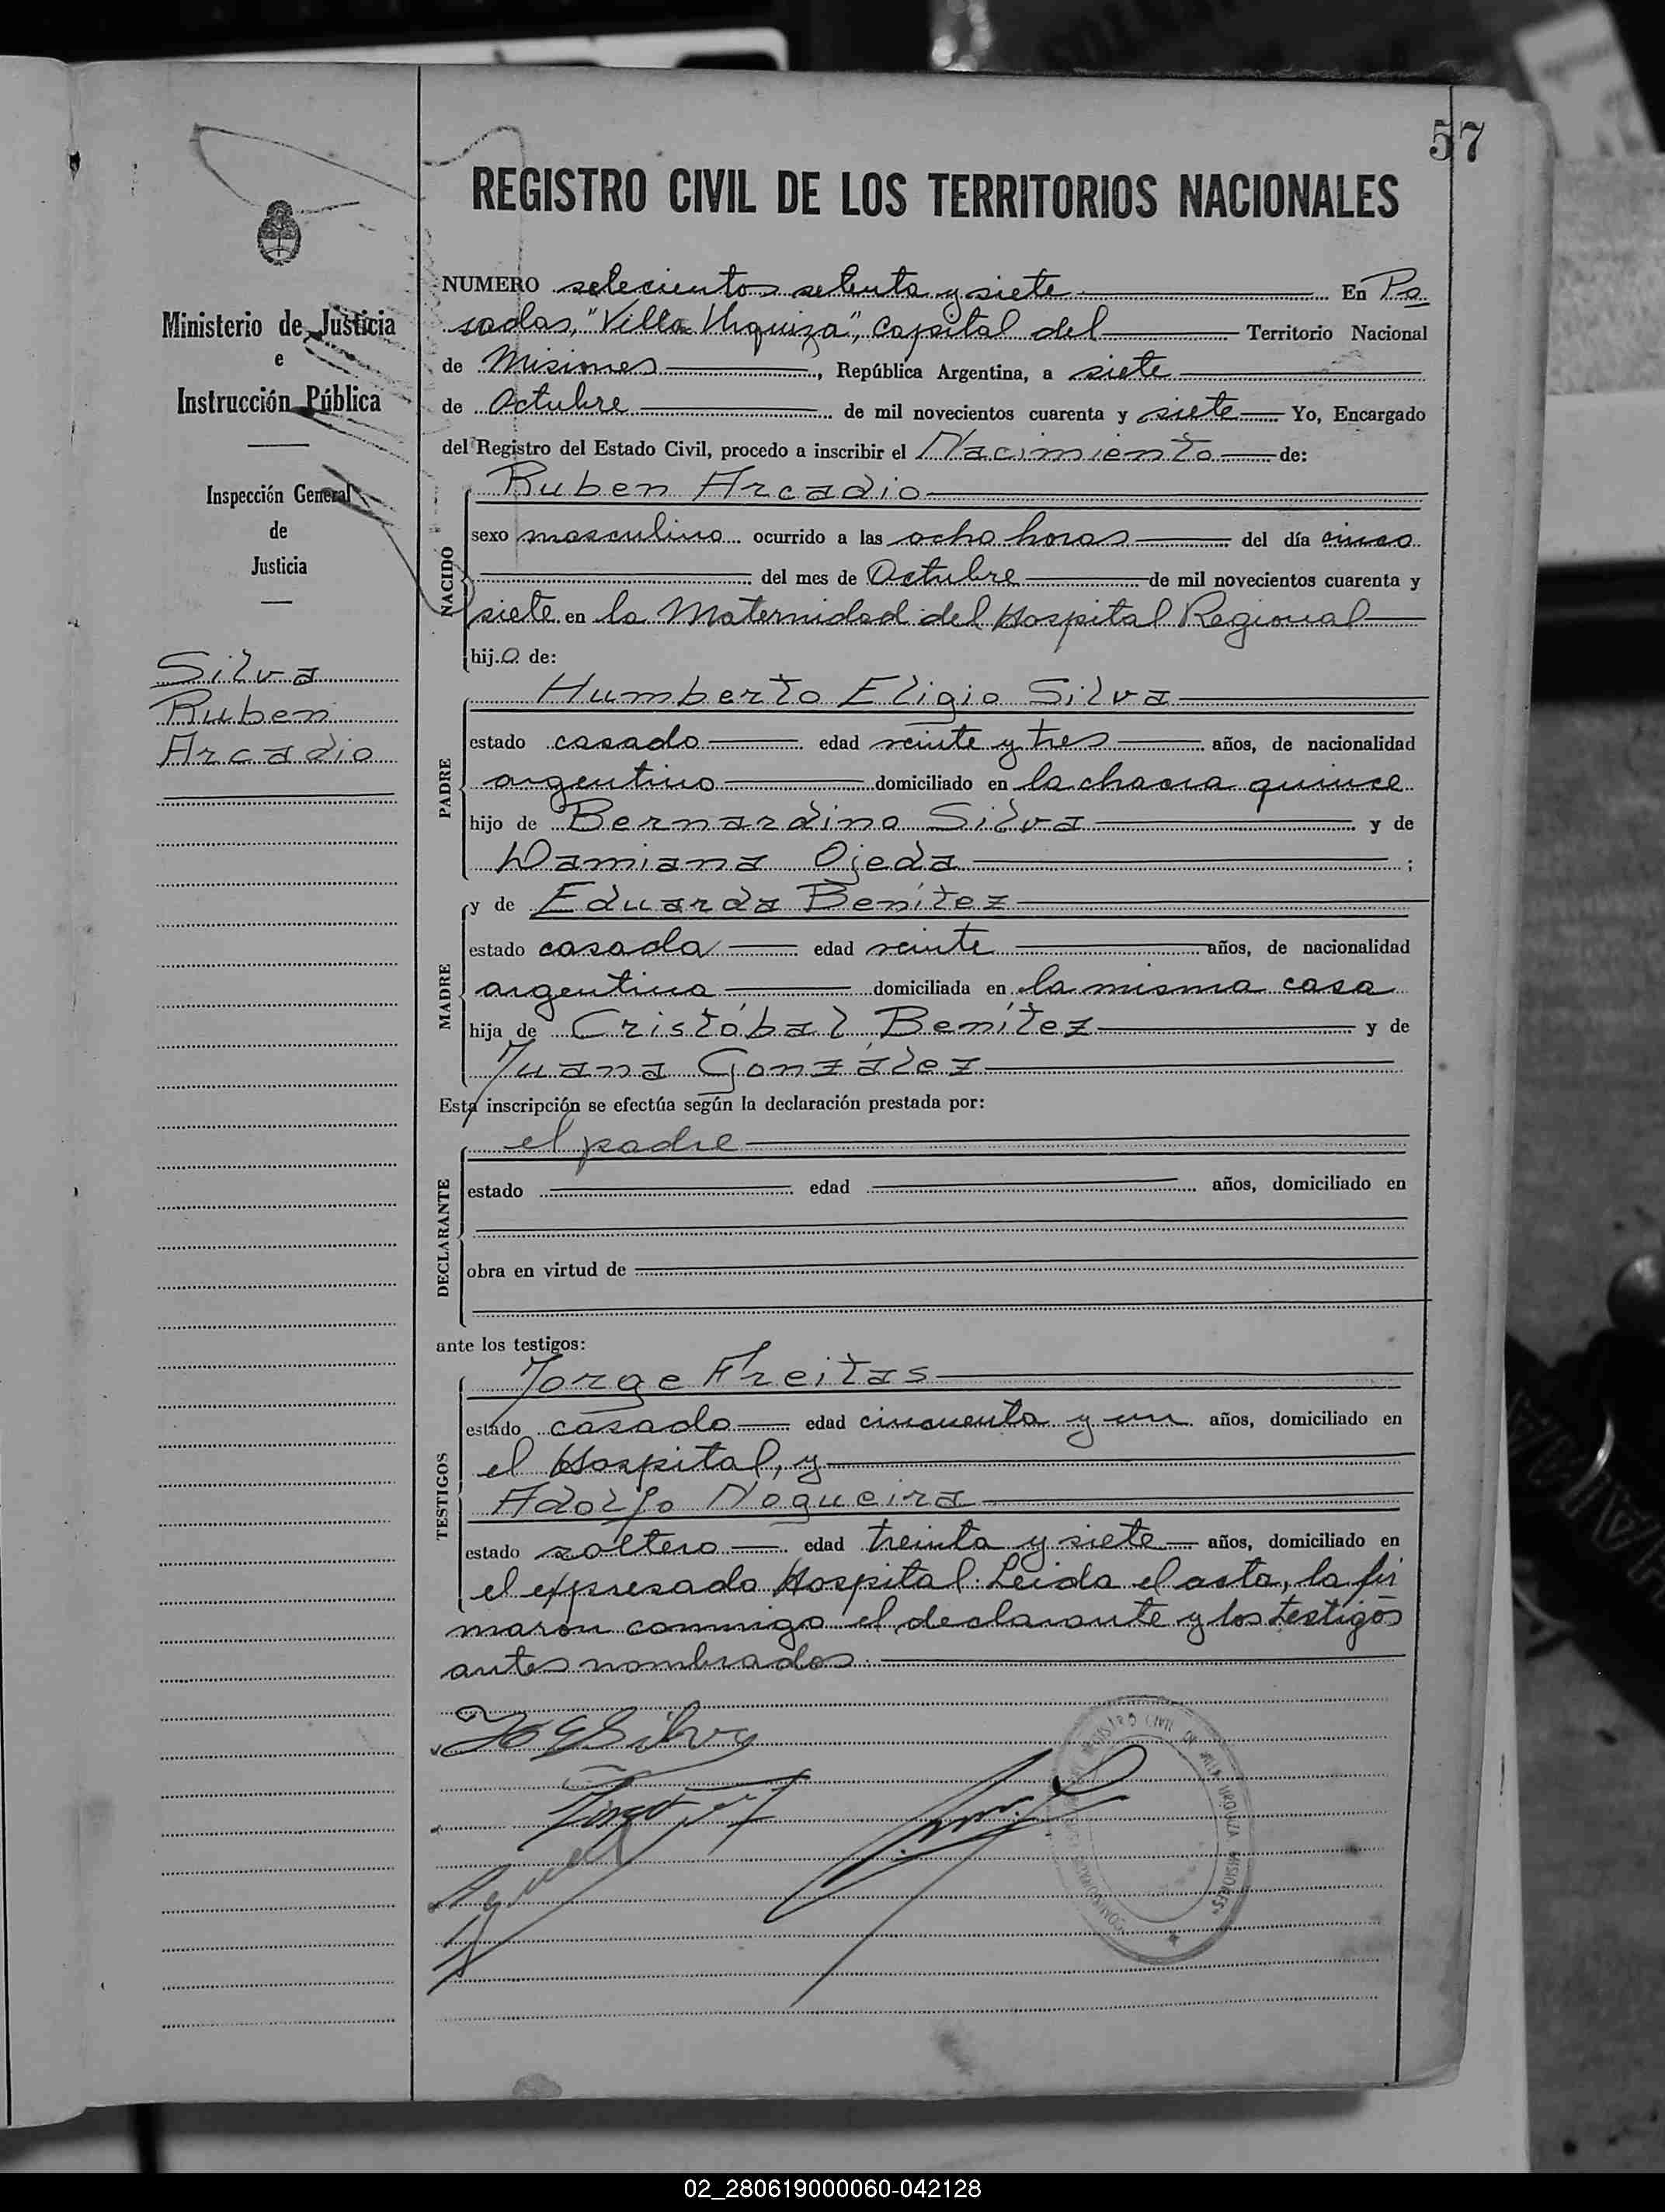 57
REGISTRO CIVIL DE LOS TERRITORIOS NACIONALES
Ministerio de Justicia
e
Instrucción Pública
Inspección General
de
Justicia
Silva
Ruben
Arcadio
NUMERO setecientos setenta y siete En Po
sadas, "Villa Urquiza", Capital del Territorio Nacional
de Misiones, República Argentina, a siete
de Octubre de mil novecientos cuarenta y siete Yo, Encargado
del Registro del Estado Civil, procedo a inscribir el Nacimiento de:
NACIDO
Ruben Arcadio
sexo masculino ocurrido a las ocho horas del día cinco
del mes de Octubre de mil novecientos cuarenta y
siete en la Maternidad del Hospital Regional
hijo de:
PADRE
Humberto Eligio Silva
estado casado edad veinte y tres años, de nacionalidad
argentino domiciliado en la chacra quince
hijo de Bernardino Silva y de
Damiana Ojeda;
MADRE
y de Eduarda Benítez
estado casada edad veinte años, de nacionalidad
argentina domiciliada en la misma casa
hija de Cristóbal Benítez y de
Juana González
Esta inscripción se efectúa según la declaración prestada por:
DECLARANTE
el padre
estado edad años, domiciliado en
obra en virtud de
ante los testigos:
TESTIGOS
Jorge Freitas
estado casado edad cincuenta y un años, domiciliado en
el Hospital, y
Adolfo Nogueira
estado soltero edad treinta y siete años, domiciliado en
el expresado Hospital. Leida el acta, la fir
maron conmigo el declarante y los testigos
antes nombrados.
Silva
REGISTRO CIVIL DE VILLA URQUIZA MISIONES
02_280619000060-042128